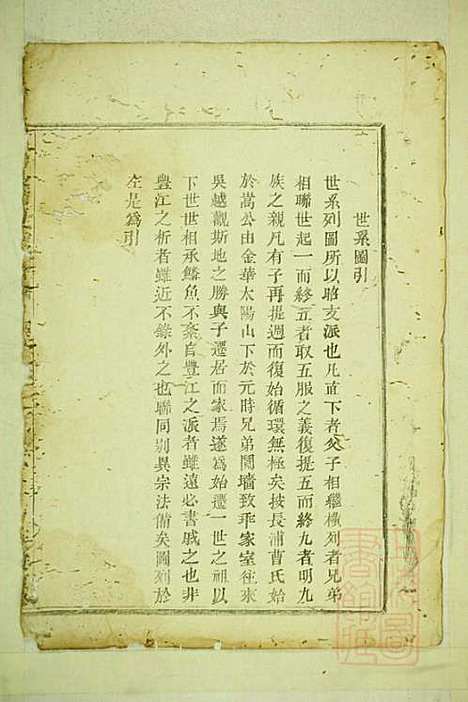 世系圖引
世系列圖所以昭支派也凡直下者父子相繼橫列者兄弟
相聯世起一而終五者取五服之義復提五而終九者明九
族之親凡有子再提週而復始循環無極矣按長浦曹氏始
於嵩公由金華太陽山下於元時兄弟鬩墻致乖家室往來
吳越觀斯地之勝與子遷居而家焉遂為始遷一世之祖以
下世世相承鱗魚不紊自豐江之派者雖遠必書戚之也非
豐江之析者雖近不錄外之也聯同别異宗法備矣圖列於
左是為引